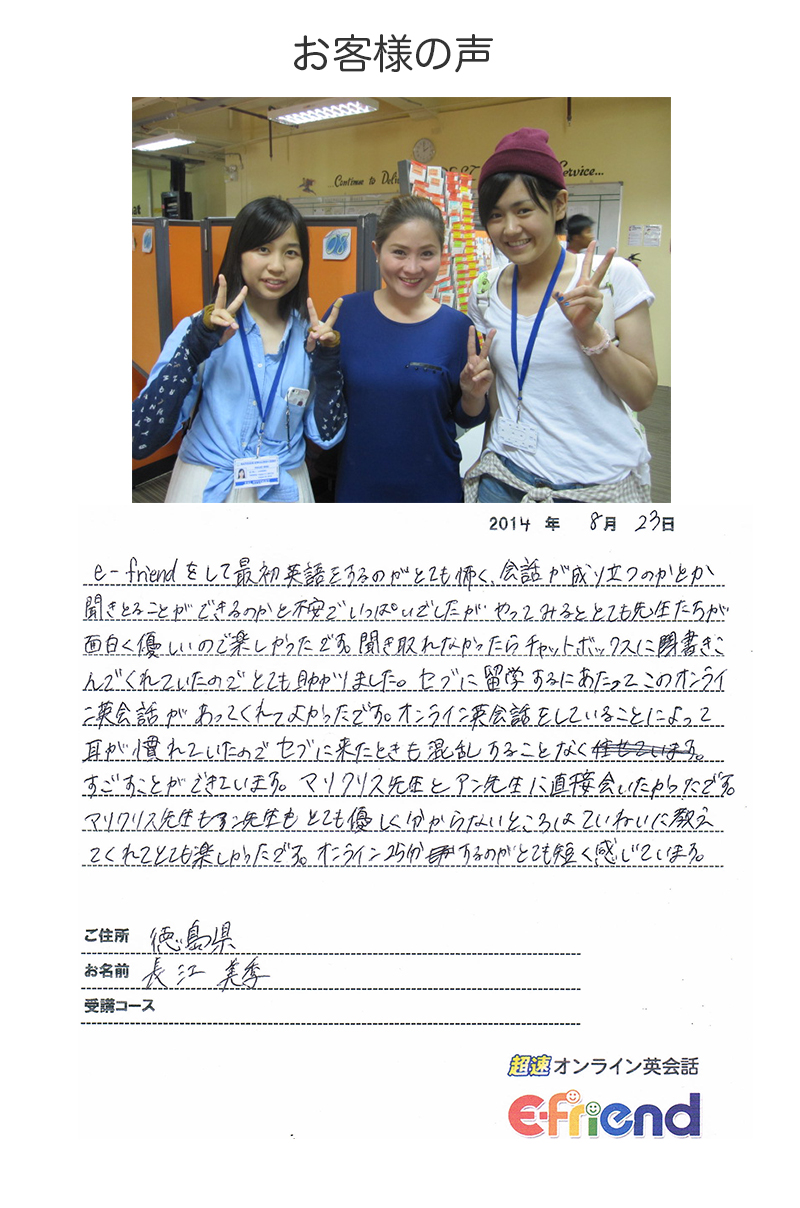 お客様の声
...Continue to Deliv
Service...
2014 年 8月 23日
e-friendをして最初英語をするのがとても怖く、会話が成り立つのかとか
聞きとることができるのかと不安でいっぱいでしたがやってみるととても先生たちが
面白く優しいので楽しかったです。聞き取れなかったらチャットボックスに書きこ
んでくれていたのでとても助かりました。セブに留学するにあたってこのオンライ
ン英会話があってくれてよかったです。オンライン英会話をしていることによって
耳が慣れていたのでセブに来たときも混乱することなく
すごすことができています。マリクリス先生とアン先生に直接会いたかったです。
マリクリス先生もアン先生もとても優しく分からないところはていねいに教え
てくれてとても楽しかったです。オンライン25分するのがとても短く感じています。
ご住所 徳島県
お名前 長江 美季
受講コース
超速オンライン英会話
E-friend